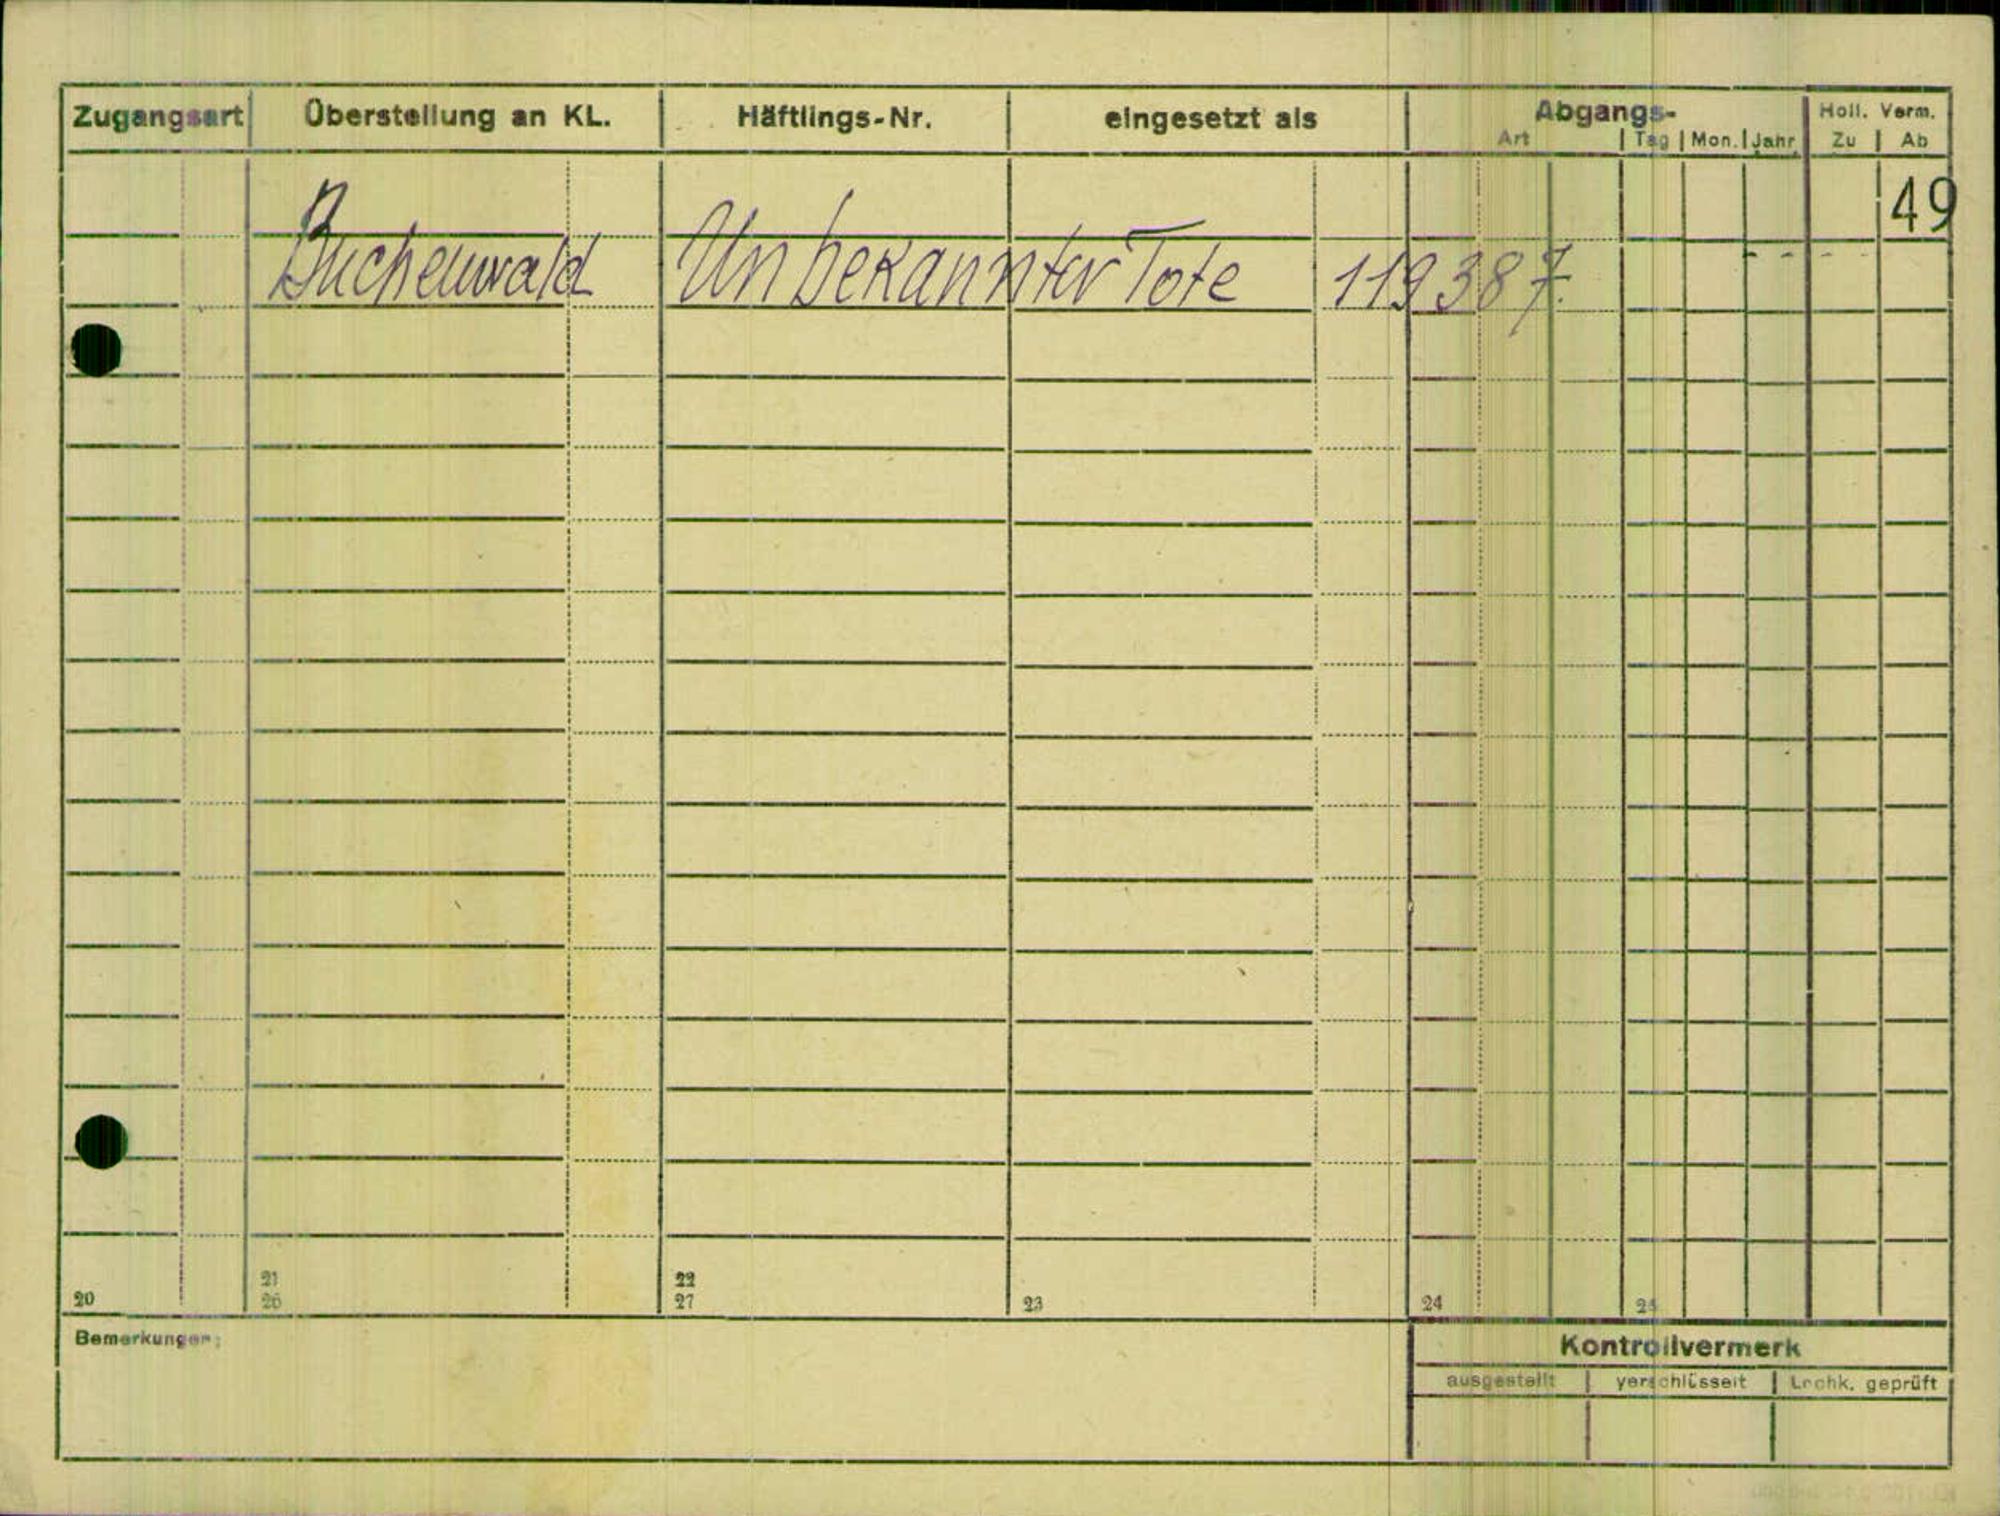 Zugangsart Überstellung an KL. Häftlings-Nr. eingesetzt als Abgangs- Holl. Verm.
Art Tag Mon. Jahr Zu Ab
49
Buchenwald Unbekannter Tote 119387.
20 21 22 23 24 25
26 27
Bemerkungen:
Kontrollvermerk
ausgestellt verschlüsselt Lochk. geprüft